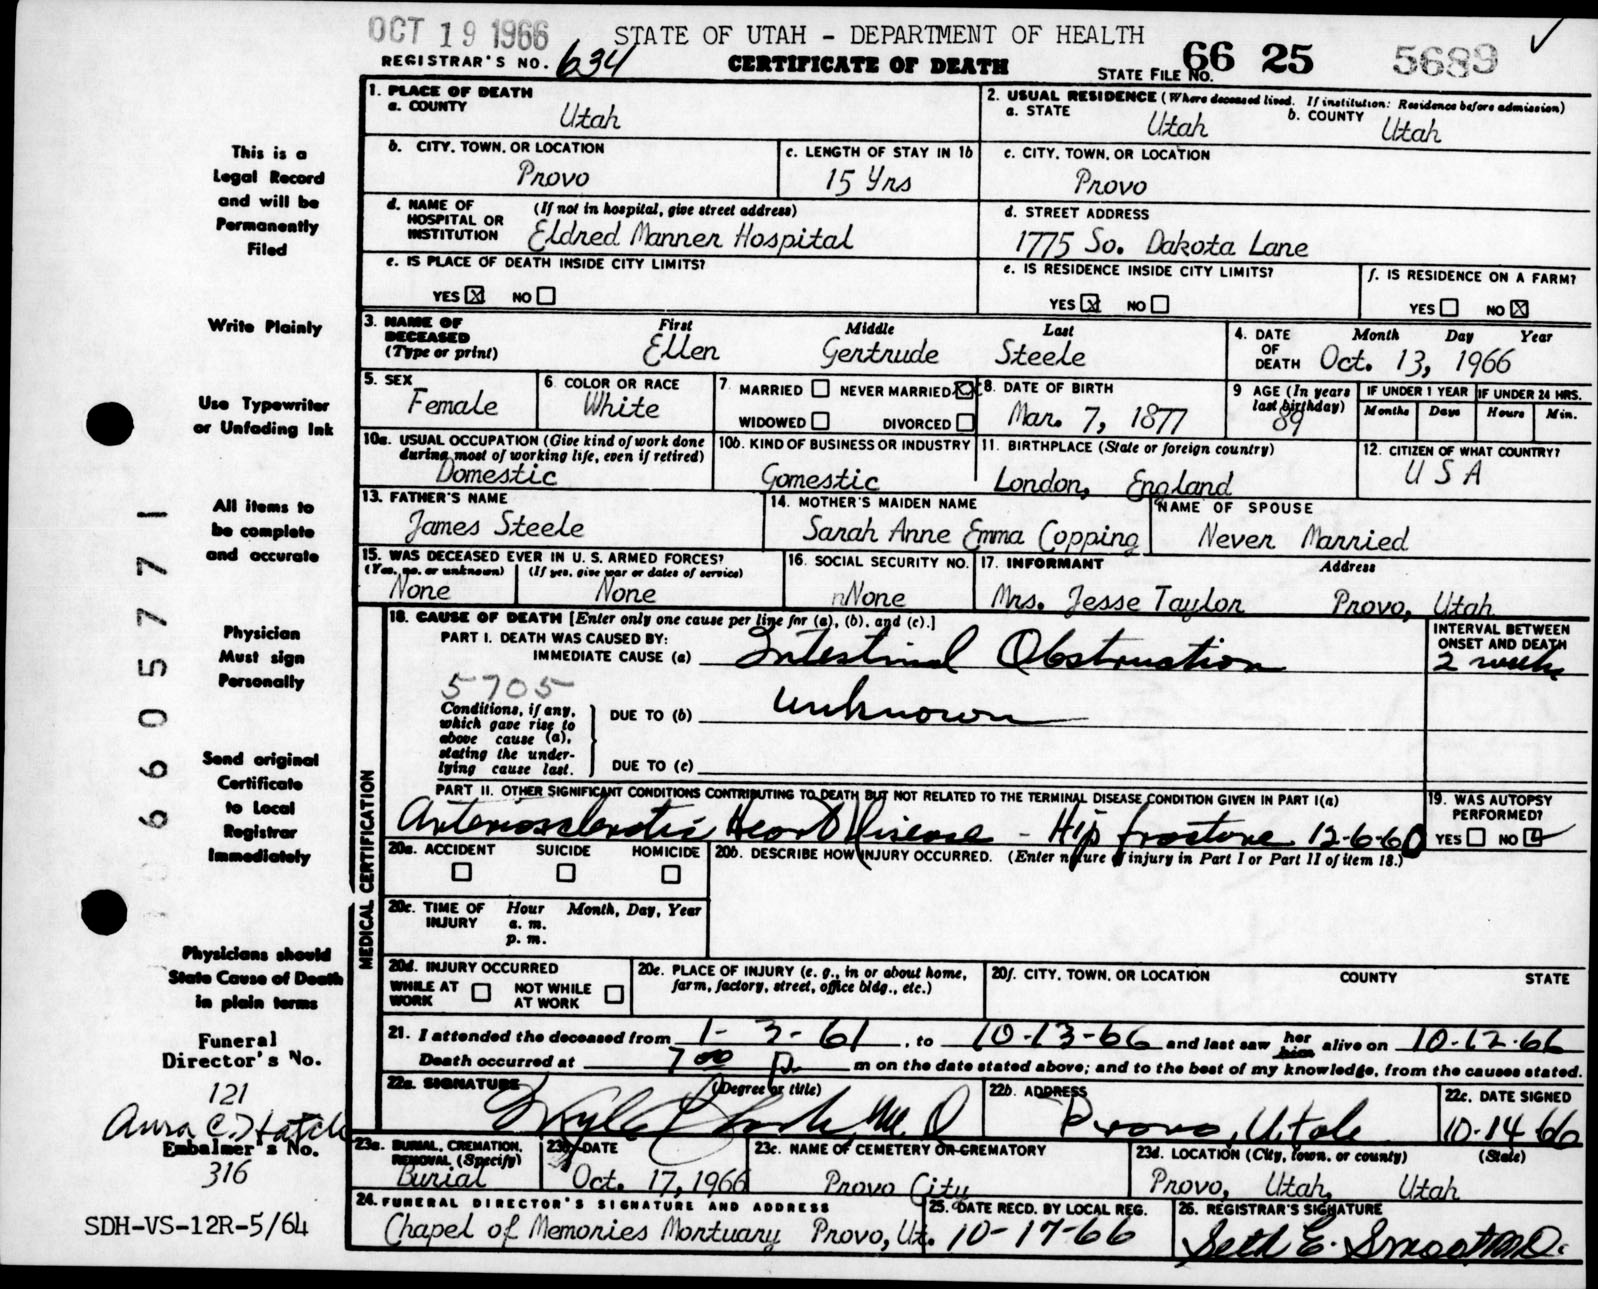 OCT 19 1966
STATE OF UTAH - DEPARTMENT OF HEALTH
REGISTRAR'S NO. 634
CERTIFICATE OF DEATH
STATE FILE NO. 66 25 5689
This is a
Legal Record
and will be
Permanently
Filed
Write Plainly
Use Typewriter
or Unfading Ink
All items to
be complete
and accurate
Physician
Must sign
Personally
Send original
Certificate
to Local
Registrar
Immediately
Physicians should
State Cause of Death
in plain terms
Funeral
Director's No.
121
Embalmer's No.
316
SDH-VS-12R-5/64
66905771
1. PLACE OF DEATH
a. COUNTY
Utah
2. USUAL RESIDENCE (Where deceased lived. If institution: Residence before admission)
a. STATE Utah b. COUNTY Utah
b. CITY, TOWN, OR LOCATION
Provo
c. LENGTH OF STAY IN 1b
15 Yrs
c. CITY, TOWN, OR LOCATION
Provo
d. NAME OF HOSPITAL OR INSTITUTION
(If not in hospital, give street address)
Eldred Manner Hospital
d. STREET ADDRESS
1775 So. Dakota Lane
e. IS PLACE OF DEATH INSIDE CITY LIMITS?
YES X NO
e. IS RESIDENCE INSIDE CITY LIMITS?
YES X NO
f. IS RESIDENCE ON A FARM?
YES NO X
3. NAME OF DECEASED
(Type or print)
First Middle Last
Ellen Gertrude Steele
4. DATE OF DEATH
Month Day Year
Oct. 13, 1966
5. SEX
Female
6. COLOR OR RACE
White
7. MARRIED NEVER MARRIED X
WIDOWED DIVORCED
8. DATE OF BIRTH
Mar. 7, 1877
9 AGE (In years last birthday)
89
IF UNDER 1 YEAR
Months Days
IF UNDER 24 HRS.
Hours Min.
10a. USUAL OCCUPATION (Give kind of work done during most of working life, even if retired)
Domestic
10b. KIND OF BUSINESS OR INDUSTRY
Gomestic
11. BIRTHPLACE (State or foreign country)
London, England
12. CITIZEN OF WHAT COUNTRY?
U S A
13. FATHER'S NAME
James Steele
14. MOTHER'S MAIDEN NAME
Sarah Anne Emma Copping
NAME OF SPOUSE
Never Married
15. WAS DECEASED EVER IN U. S. ARMED FORCES?
(Yes, no, or unknown) (If yes, give war or dates of service)
None None
16. SOCIAL SECURITY NO.
nNone
17. INFORMANT Address
Mrs. Jesse Taylor Provo, Utah
MEDICAL CERTIFICATION
18. CAUSE OF DEATH [Enter only one cause per line for (a), (b), and (c).]
PART I. DEATH WAS CAUSED BY:
IMMEDIATE CAUSE (a) Intestinal Obstruction
INTERVAL BETWEEN ONSET AND DEATH
2 weeks
5705
Conditions, if any,
which gave rise to
above cause (a),
stating the under-
lying cause last.
DUE TO (b) unknown
DUE TO (c)
PART II. OTHER SIGNIFICANT CONDITIONS CONTRIBUTING TO DEATH BUT NOT RELATED TO THE TERMINAL DISEASE CONDITION GIVEN IN PART I(a)
Arteriosclerotic Heart Disease - Hip fracture 12-6-60
19. WAS AUTOPSY PERFORMED?
YES NO
20a. ACCIDENT SUICIDE HOMICIDE
20b. DESCRIBE HOW INJURY OCCURRED. (Enter nature of injury in Part I or Part II of item 18.)
20c. TIME OF INJURY
Hour Month, Day, Year
a. m.
p. m.
20d. INJURY OCCURRED
WHILE AT WORK NOT WHILE AT WORK
20e. PLACE OF INJURY (e. g., in or about home, farm, factory, street, office bldg., etc.)
20f. CITY, TOWN, OR LOCATION COUNTY STATE
21. I attended the deceased from 1-3-61, to 10-13-66 and last saw her him alive on 10-12-66
Death occurred at 7 00 p m on the date stated above; and to the best of my knowledge, from the causes stated.
22a. SIGNATURE (Degree or title)
M. D
22b. ADDRESS
Provo, Utah
22c. DATE SIGNED
10-14-66
23a. BURIAL, CREMATION, REMOVAL (Specify)
Burial
23b. DATE
Oct. 17, 1966
23c. NAME OF CEMETERY OR CREMATORY
Provo City
23d. LOCATION (City, town, or county) (State)
Provo, Utah, Utah
24. FUNERAL DIRECTOR'S SIGNATURE AND ADDRESS
Chapel of Memories Mortuary Provo, Ut.
25. DATE RECD. BY LOCAL REG.
10-17-66
26. REGISTRAR'S SIGNATURE
Seth E. Smoot M.D.